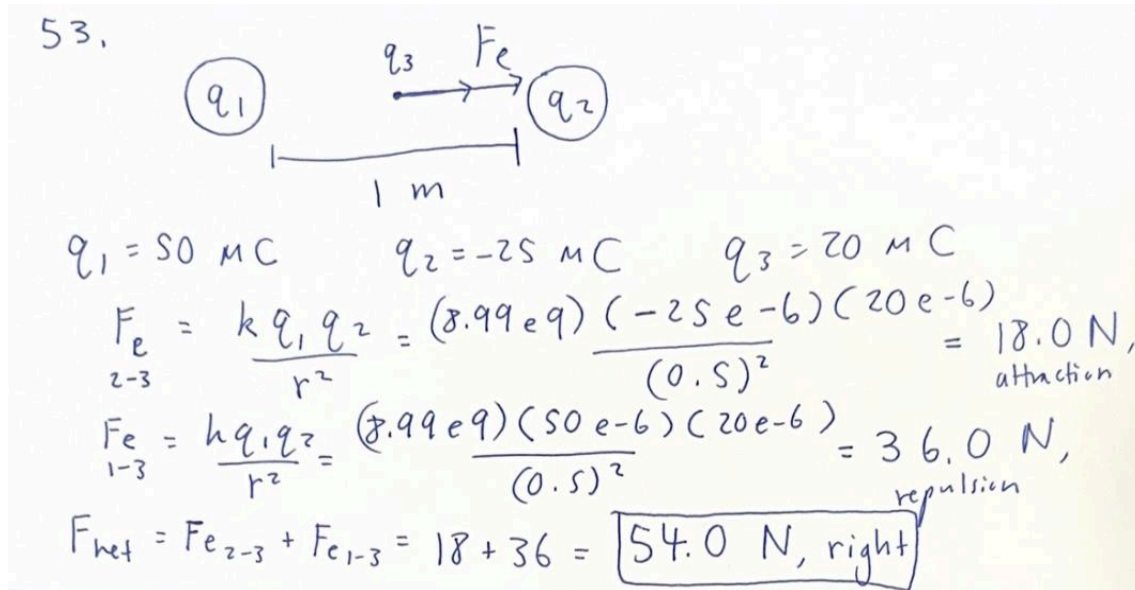 53.
q3 Fe
q1 q2
1 m
q1 = 50 μC q2 = -25 μC q3 = 20 μC
Fe 2-3 = kq1q2/r² = (8.99e9)(-25e-6)(20e-6)/(0.5)² = 18.0 N, attraction
Fe 1-3 = kq1q2/r² = (8.99e9)(50e-6)(20e-6)/(0.5)² = 36.0 N, repulsion
Fnet = Fe2-3 + Fe1-3 = 18 + 36 = 54.0 N, right